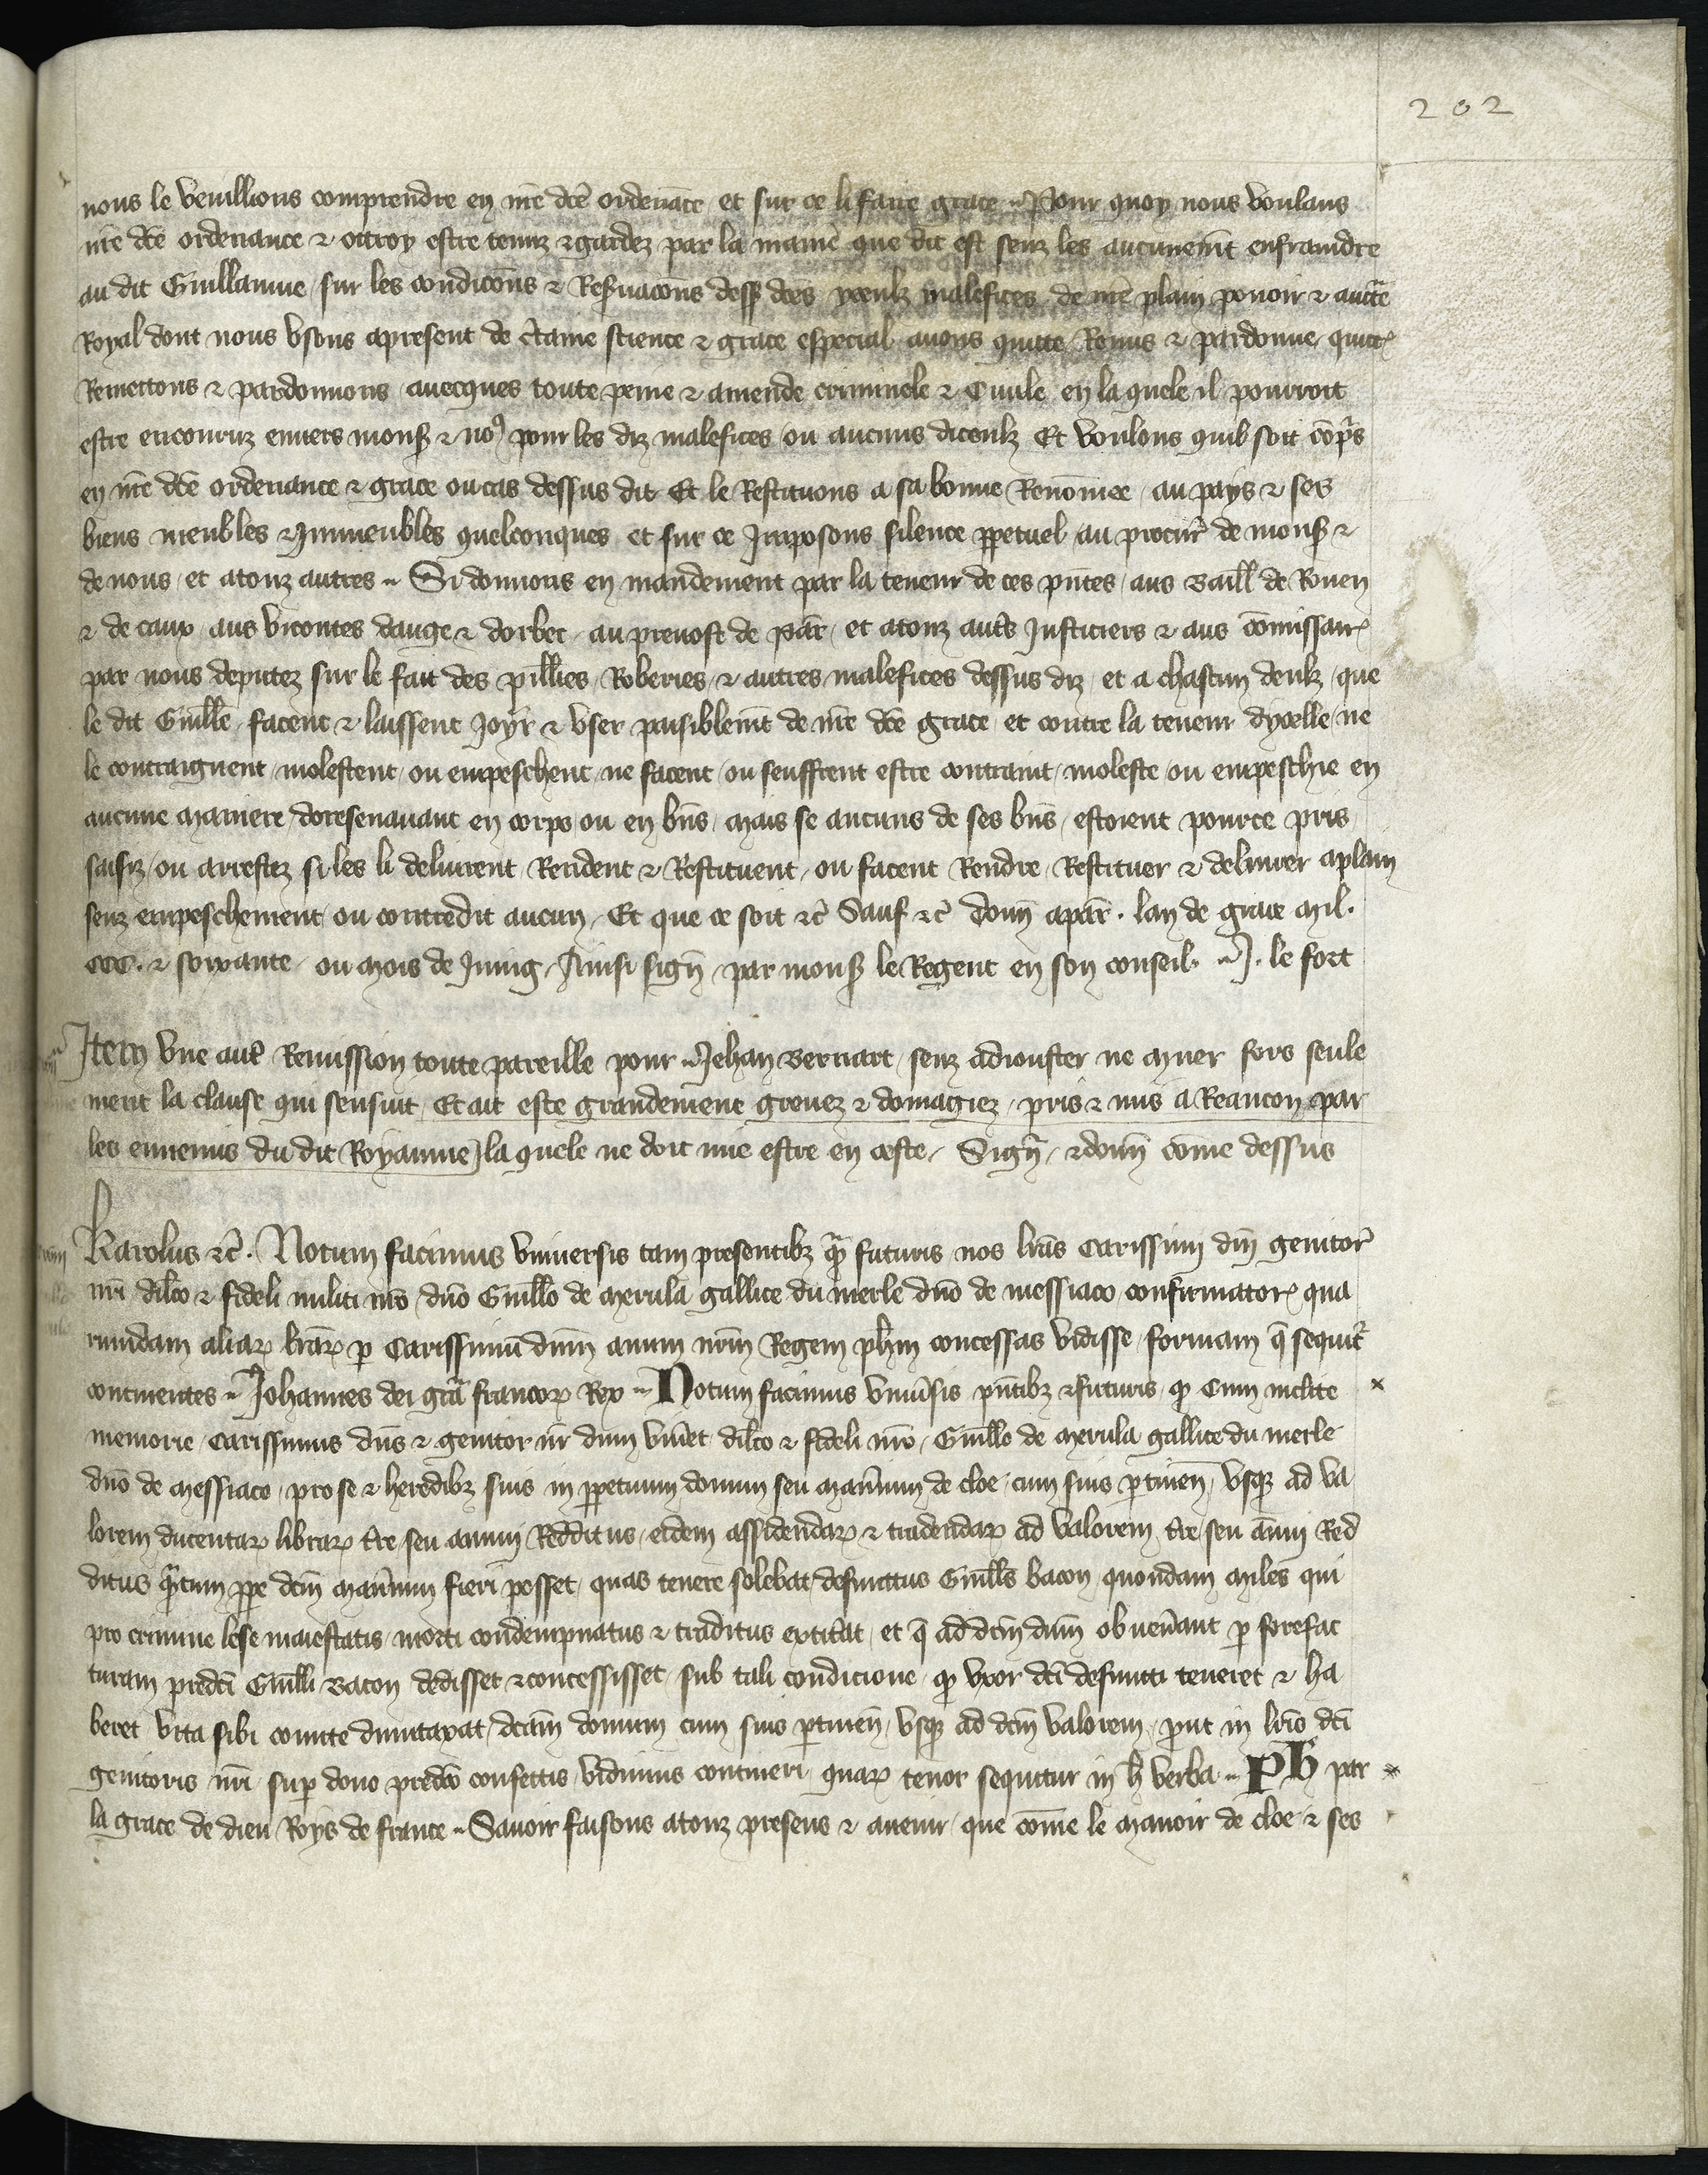 202
nous le veuillions comprendre en nre̅ dce̅ ordena̅ce et sur ce li faire grace Pour quoy nous voulans
nre̅ dce̅ ordenance & ottroy estre tenuz & gardez par la manie̅ que dit est senz les aucuneme̅t enfraindre
au dit Guillaume sur les condico̅ns & Res̅uaco̅ns dess des yceulz malefices de nre̅ plain pouoir & aucte̅
Royal dont nous vsons apresent de c̅taine science & grace especial auons quitte Remis & pardonne quitt
Remettons & pardonnons auecques toute peine & amende criminele & Ciuile en la quele il pourroit
estre encouruz enuers mons̅ & no9 pour les diz malefices ou aucuns diceulz Et voulons quil soit co̅pris
en nre̅ dce̅ ordenance & grace ou cas dessus dit Et le Restituons a sa bonne Reno̅mee au pays & ses
biens meubles & Immeubles quelconques et sur ce Imposons silence ꝑpetuel au procur̅ de mons̅ &
de nous et atouz autres Si donnons en mandement par la teneur de ces pn̅tes aus Baill̅ de Rouen
& de caux aus vicontes dauge & dorbec au preuost de Par̅ et atouz aut̅s Justiciers & aus co̅missair
par nous deputez sur le fait des pill̅ies Roberies & autres malefices dessus diz et a chascun deulz que
le dit Guill̅e facent & laissent Joyr & vser paisibleme̅t de nre̅ dce̅ grace et contre la teneur dycelle ne
le contraignent molestent ou empeschent ne facent ou seuffrent estre contraint moleste ou empeschie en
aucune maniere doresenauant en corps ou en bn̅s mais se aucuns de ses bn̅s estoient pource pris
saisiz ou arrestez si les li deliurent Rendent & Restituent ou facent Rendre Restituer & deliurer aplain
senz empeschement ou contredit aucun Et que ce soit &c̅ Sauf &c̅ Donn̅ apar̅. lan de grace mil.
CCC. & soixante ou mois de Juing Ainsi sign̅ par mons̅ le Regent en son conseil. J. le fort
Item vne aut̅ Remission toute pareille pour Jehan Bernart senz adiouster ne muer fors seule
ment la clause qui sensuit Et ait este grandement greuez & domagiez pris & mis a Reancon par
les ennemis du dit Royaume] la quele ne doit mie estre en ceste Sign̅ & donn̅ co̅me dessus
Karolus &c̅. Notum facimus vniuersis tam presentibz qu̅a futuris nos lra̅s Carissimi dn̅i genitor̅
nr̅i dil̅co & fideli militi nr̅o dn̅o Guill̅o de Merula gallice du merle dn̅o de messiaco confirmator qua
rumdam aliaꝝ lra̅ꝝ ꝑ Carissimu̅ dn̅m auum nr̅m Regem ph̅m concessas vidisse formam q̅ sequit̅
continentes Johannes dei gr̅a francoꝝ Rex Notum facimus vniu̅sis pn̅tibz & futuris ꝙ Cum inclite x
memorie Carissimus dn̅s & genitor nr̅ dum viu̅et dil̅co & fideli nr̅o Guill̅o de Merula gallice du merle
dn̅o de Messiaco pro se & heredibz suis in ꝑpetuum domum seu man̅ium de cloe cum suis ꝑtinen̅ vsqꝫ ad va
lorem ducentaꝝ libraꝝ t̅re seu annui Redditus eidem assidendaꝝ & tradendaꝝ ad valorem t̅re seu an̅ui Red
ditus qu̅atum ꝓpe dcm̅ man̅ium fieri posset quas tenere solebat defunctus Guill̅s bacon quondam Miles qui
pro crimine lese maiestatis morti condempnatus & traditus extit̅at et q̅ ad dcm̅ dn̅m obuen̅ant ꝑ forefac
turam predc̅i Guill̅i Bacon dedisset & concessisset sub tali condicione ꝙ vxor dc̅i defuncti teneret & ha
beret vita sibi comite dumtaxat dca̅m domum cum suis ꝑtinen̅ vsqꝫ ad dcm̅ valorem prout in lr̅is dc̅i
genitoris nr̅i suꝑ dono predc̅o confectis vidimus contineri quaꝝ tenor sequitur in h̅ verba Ph̅ par x
la grace de dieu Roys de france Sauoir faisons atouz presens & auenir que co̅me le manoir de cloe & ses